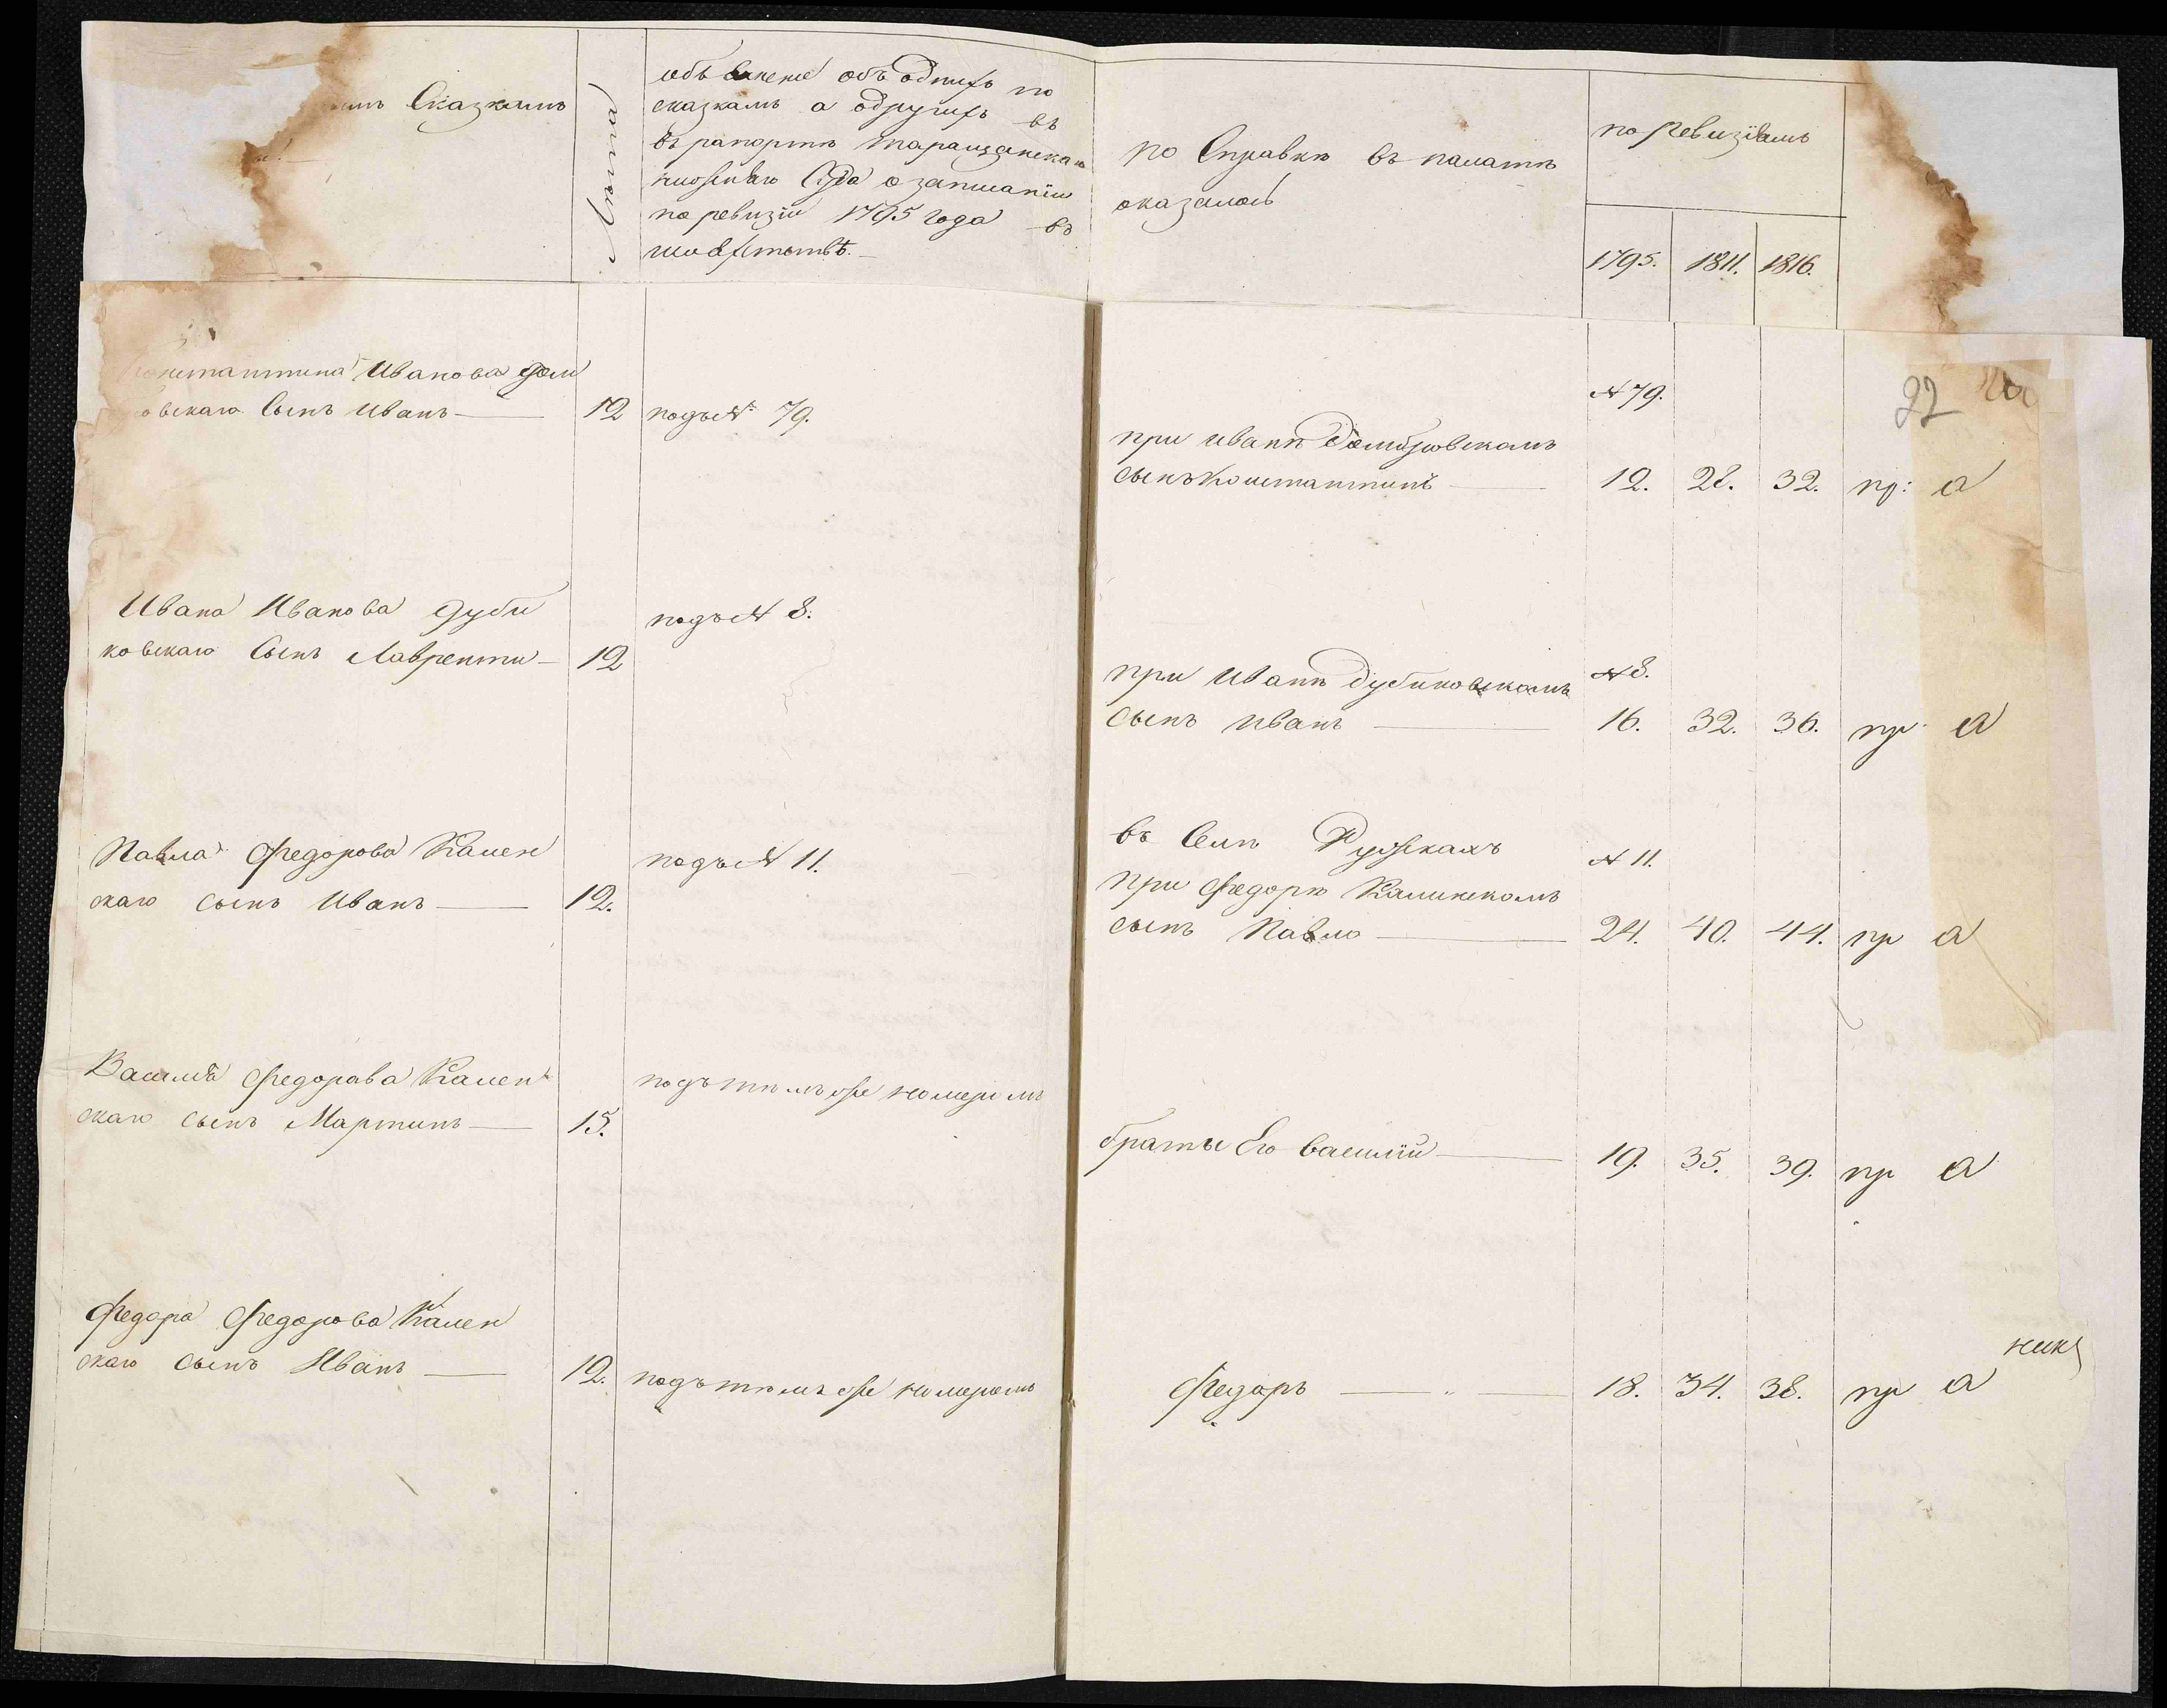 Сказкамъ
Лѣта
объявление объ однихъ по
сказкамъ а о другихъ въ
въ рапортѣ таращанскаго
нижняго Суда о записаніи
по ревизіи 1795 года въ
шляхетствѣ.
по Справкѣ въ палатѣ
оказалось
по ревизіямъ
1795. 1811. 1816.
22
Константина Иванова Дом
овскаго Сынъ Иванъ — 12 подъ № 79.
№ 79.
при Иванѣ Домбровскомъ
сынъ Константинъ — 12. 28. 32. пр: а
Ивана Иванова Дуби
ковскаго Сынъ Лаврентий — 12 подъ № 8.
при Иванѣ Дубиковскомъ № 8.
сынъ Иванъ — 16. 32. 36. пр а
Павла Федорова Кален
скаго сынъ Иванъ — 12. подъ № 11.
въ Селѣ № 11.
при Федорѣ Калинскомъ
сынъ Павло — 24. 40. 44. пр а
Василія Федорова Кален
скаго сынъ Мартинъ — 15. подъ тѣмъ же номеромъ
братья Его Василій — 19. 35. 39. пр а
Федора Федорова Кален
скаго сынъ Иванъ — 12. подъ тѣмъ же номеромъ
Федоръ — 18. 34. 38. пр а